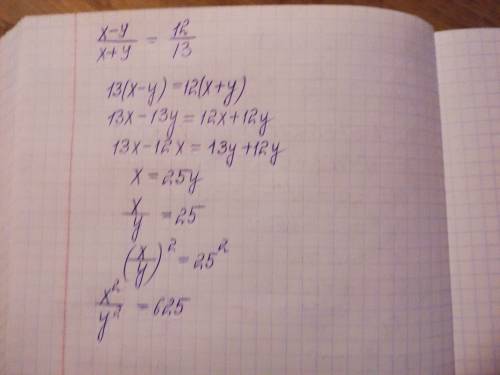 x-y / x+y = 12 / 13
13(x-y)=12(x+y)
13x-13y=12x+12y
13x-12x=13y+12y
x=25y
x / y = 25
(x / y)² = 25²
x² / y² = 625